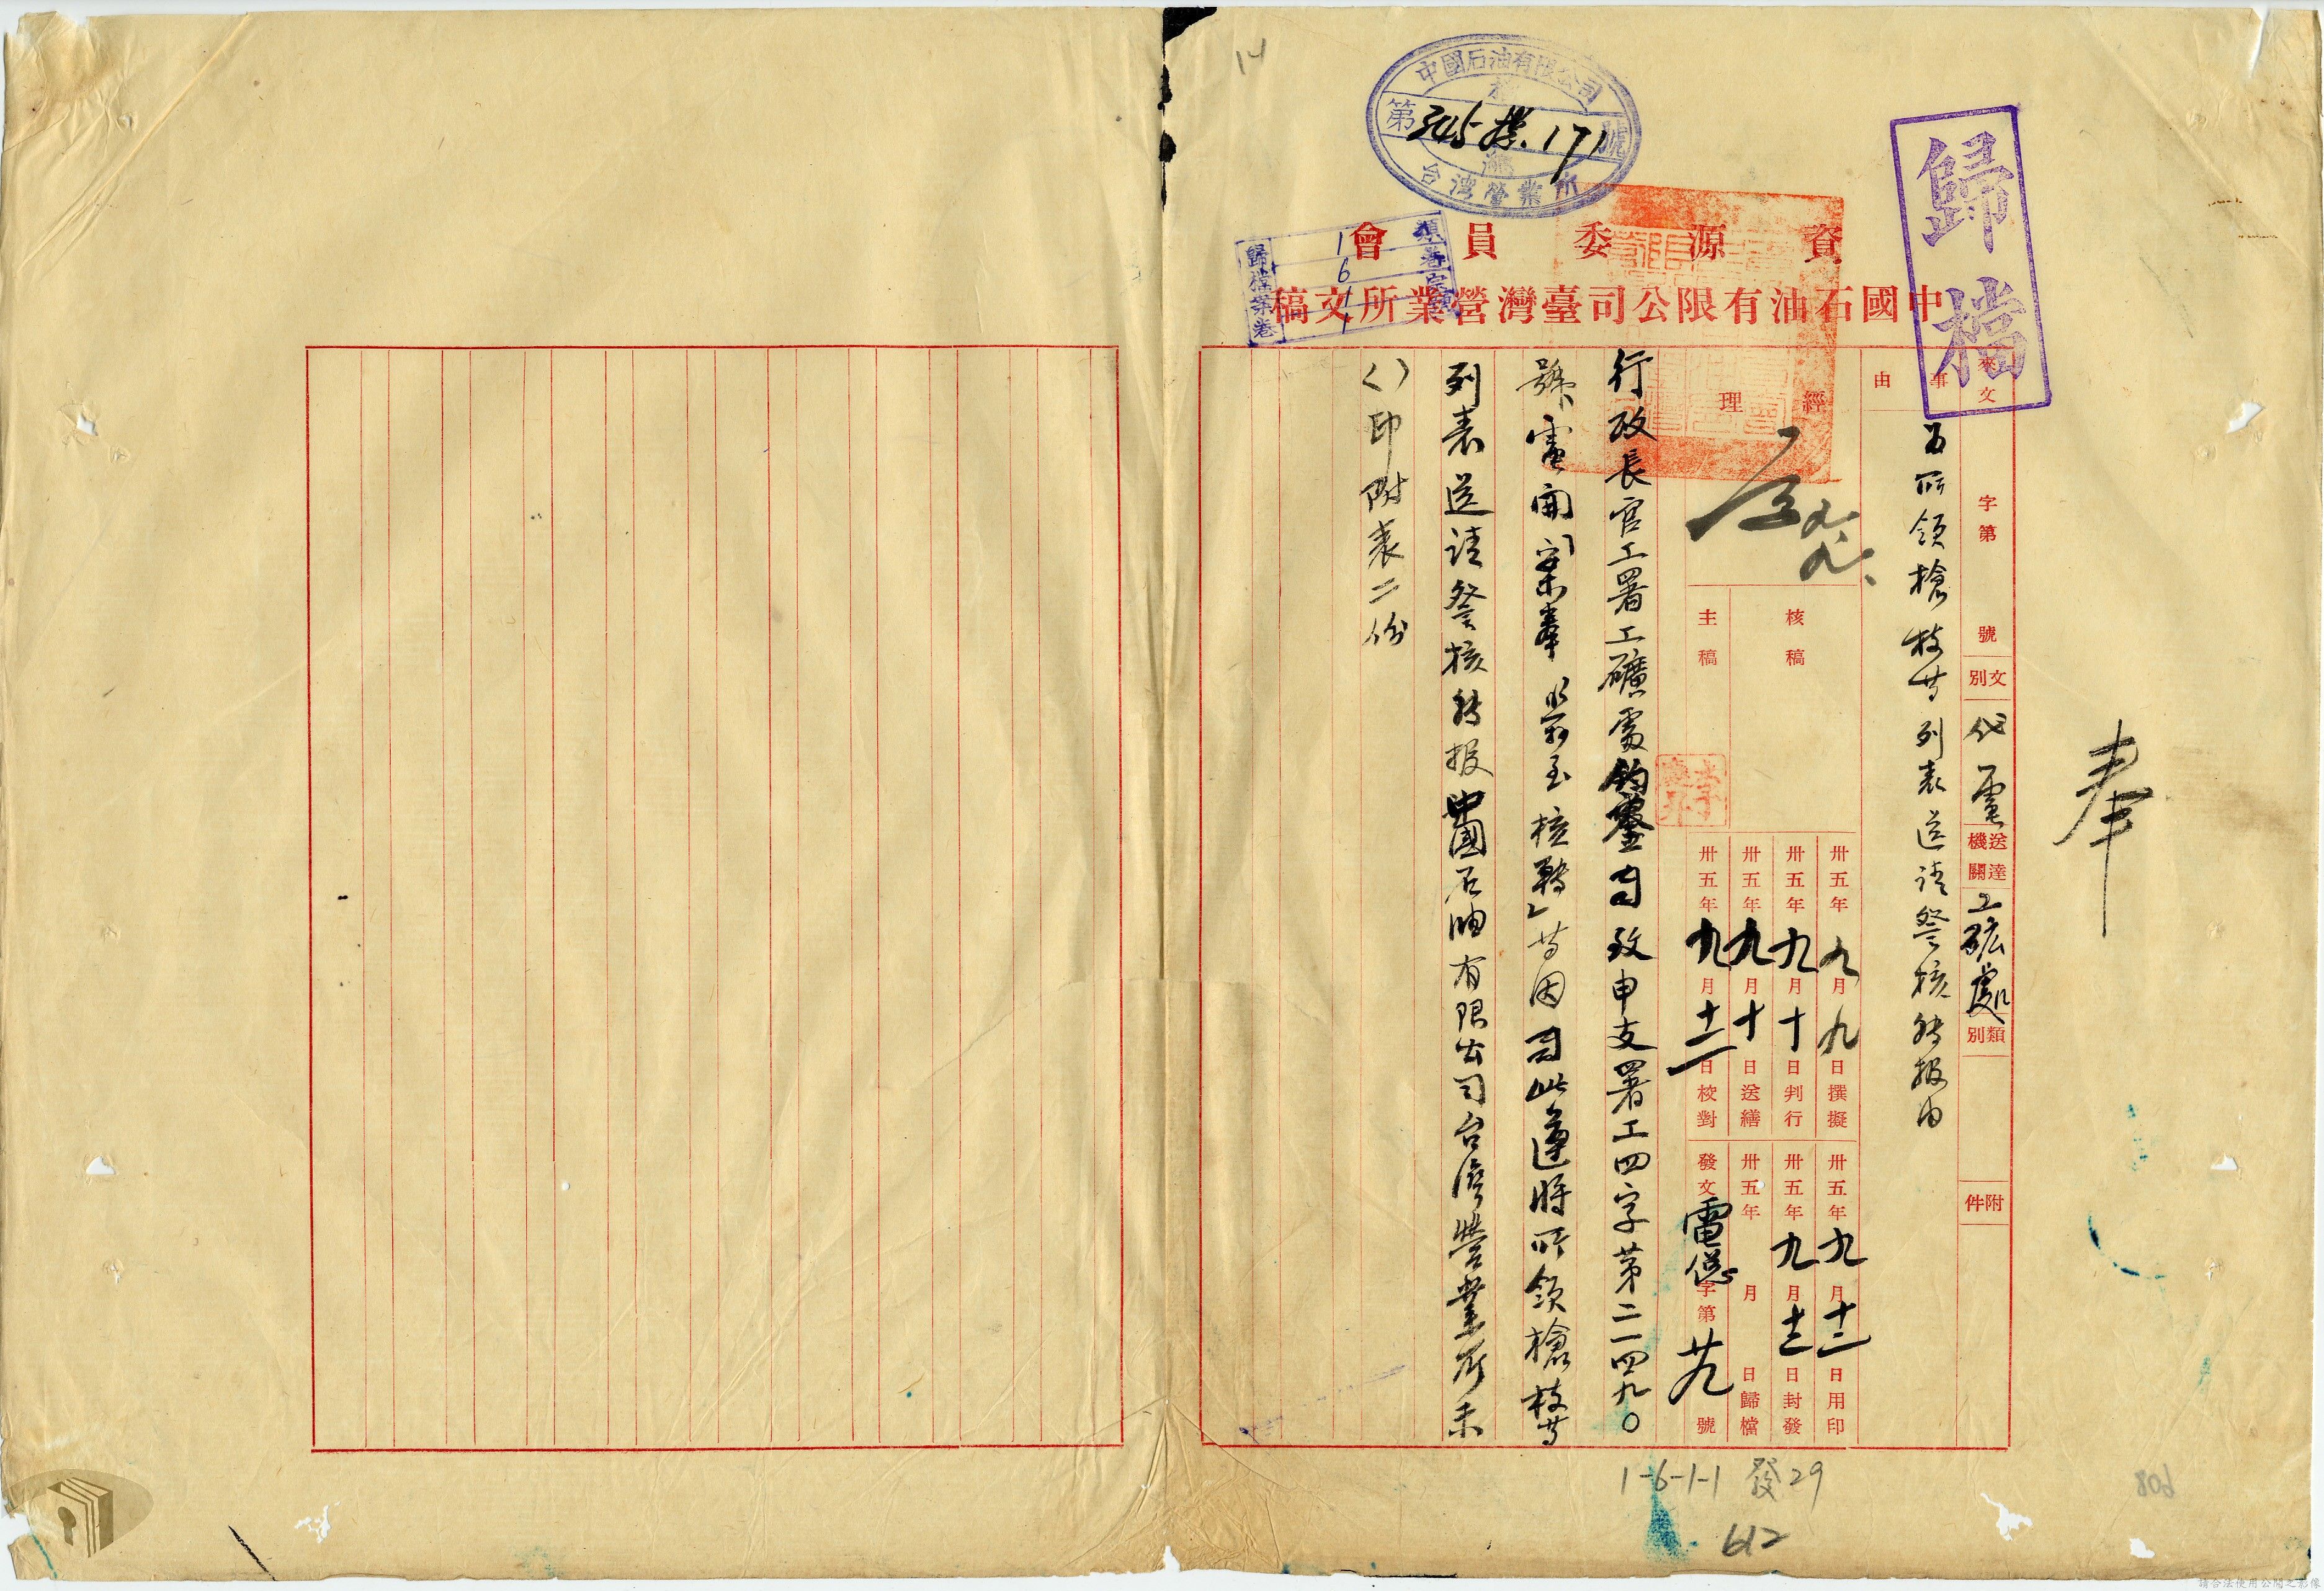 14
中國石油有限公司
第 345 171 號
台灣營業所
歸檔
類卷宗號
1 6 1 1
歸檔案卷
資源委員會
中國石油有限公司臺灣營業所文稿
來文 字第 號 文別 代電 送達機關 工礦處 類別 附件
事由 為所領槍枝等列表送請督核轉報由
奉
經理
核稿
主稿
卅五年九月九日撰擬
卅五年九月十日判行
卅五年九月十日送繕
卅五年九月十二日校對
卅五年九月十二日用印
卅五年九月十三日封發
卅五年 月 日歸檔
發文電總字第廿九號
行政長官公署工礦處鈞鑒 致申支署工四字第二一四九〇
號 電開 案奉 至核轉」等因 此遵將所領槍枝等
列表送請督核轉報中國石油有限公司台灣營業所未
()印附表二份
1-6-1-1 發29
612
608
請合法使用公開之影像